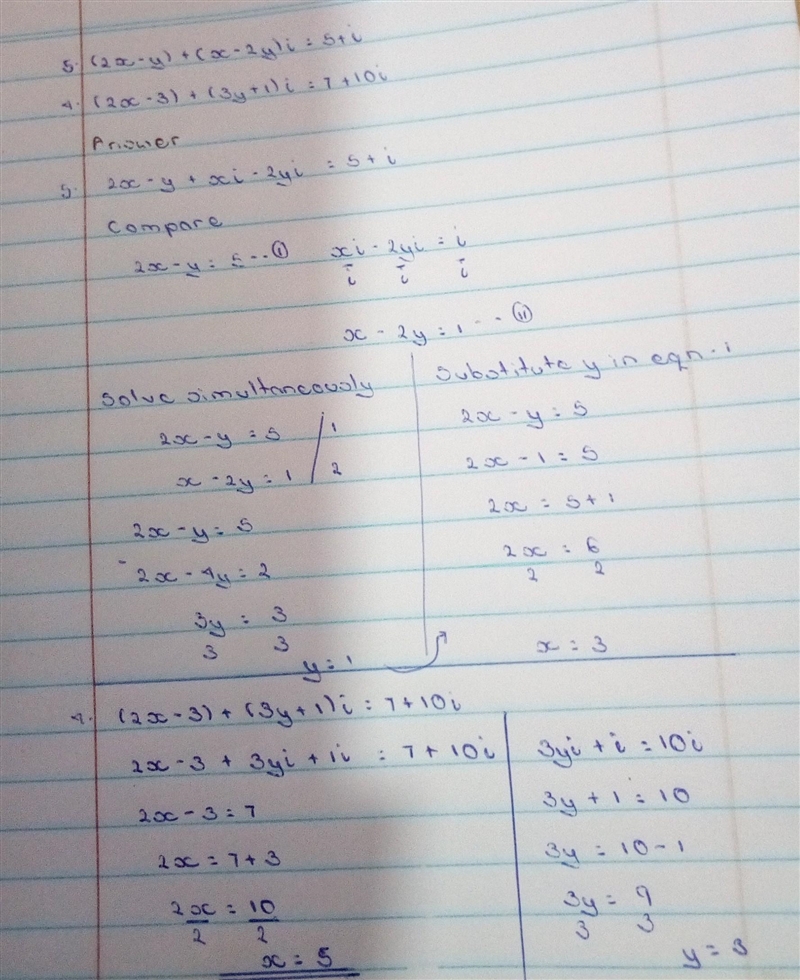 5. (2x-y) + (x-2y)i = 5+i
4. (2x-3) + (3y+1)i = 7+10i
Answer
5. 2x-y + xi - 2yi = 5+i
Compare
2x-y = 5 --- (i) xi - 2yi = i
i i i
x - 2y = 1 --- (ii)
Solve simultaneously
2x-y = 5 / 1
x - 2y = 1 / 2
2x-y = 5
- 2x - 4y = 2
3y = 3
3 3
y = 1
Substitute y in eqn. i
2x - y = 5
2x - 1 = 5
2x = 5+1
2x = 6
2 2
x = 3
4. (2x-3) + (3y+1)i = 7+10i
2x-3 + 3yi + 1i = 7+10i
2x-3 = 7
2x = 7+3
2x = 10
2 2
x = 5
3yi + i = 10i
3y + 1 = 10
3y = 10-1
3y = 9
3 3
y = 3